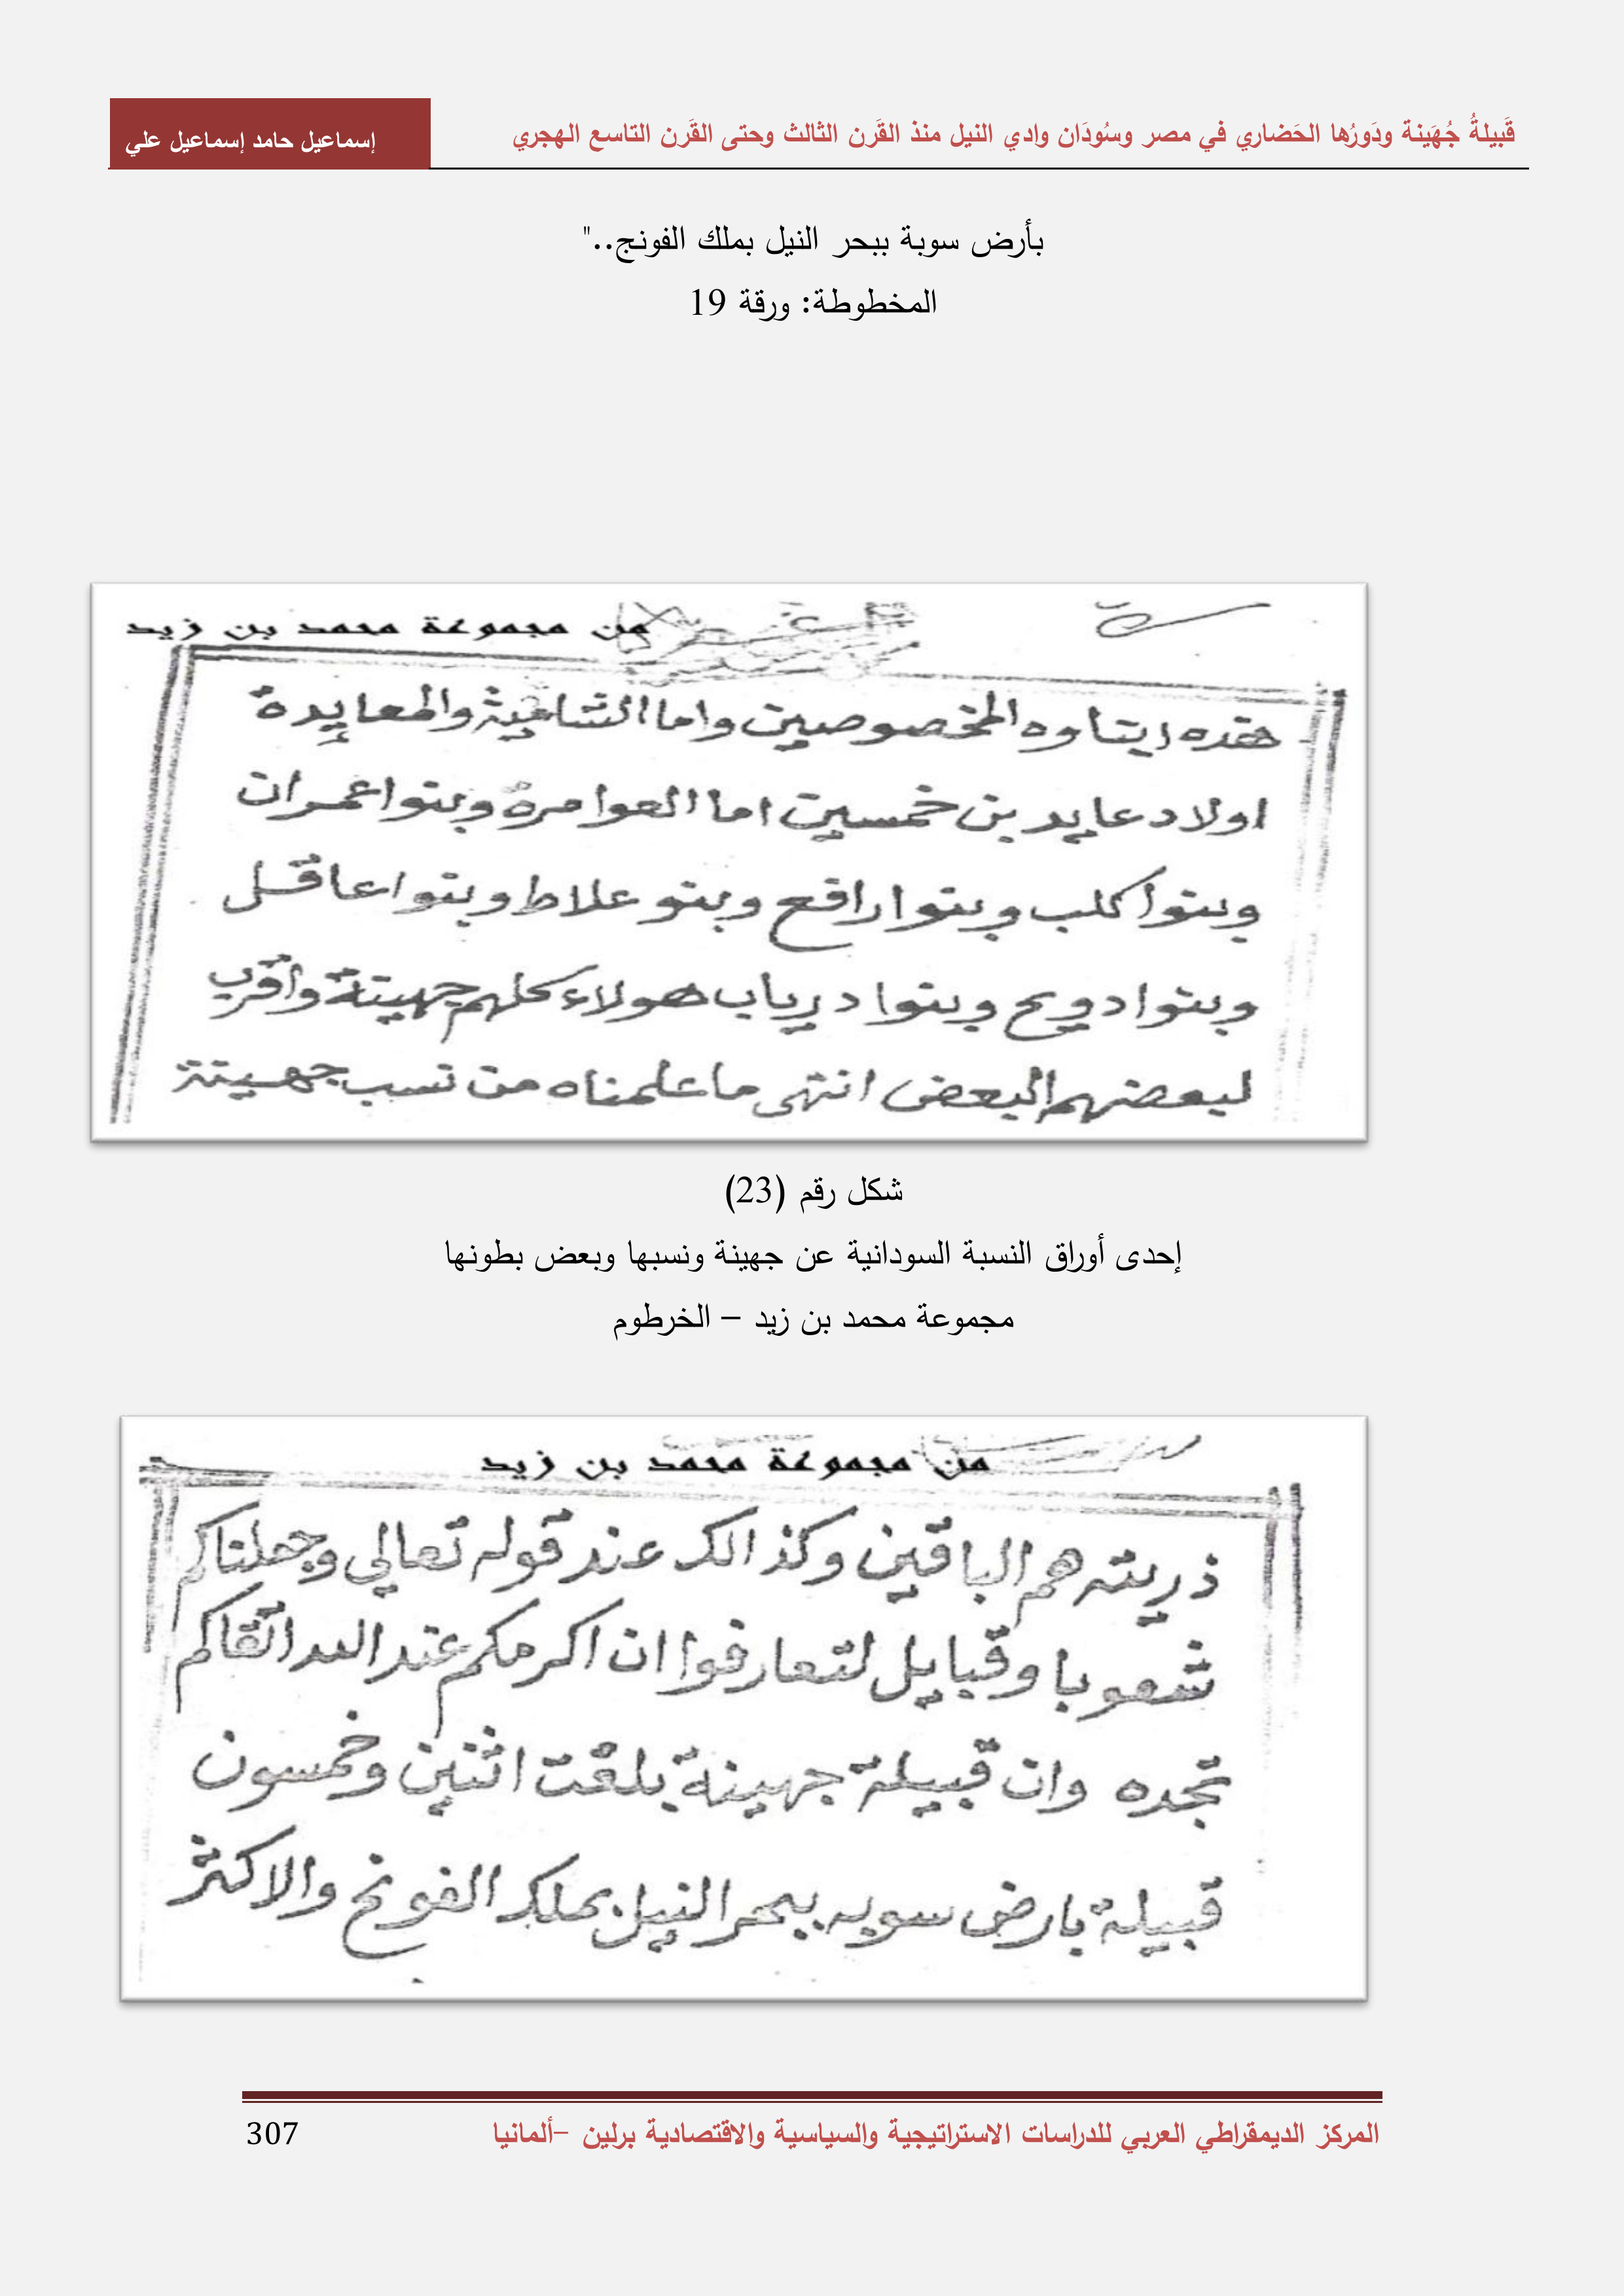 قَبيلةُ جُهَينة ودَورُها الحَضاري في مصر وسُودَان وادي النيل منذ القَرن الثالث وحتى القَرن التاسع الهجري
إسماعيل حامد إسماعيل علي
بأرض سوبة ببحر النيل بملك الفونج.."
المخطوطة: ورقة 19
من مجموعة محمد بن زيد
هذه ابناوه المخصوصين واما والمعايدة
اولاد عايد بن خمسين اما العوامرة وبنوا عمران
وبنوا كلب وبنوا رافع وبنو علاط وبنوا عاقل
وبنوا دويح وبنوا درياب هولاء كلهم جهينة واقرب
لبعضهم البعض انتهى ما علمناه من نسب جهينة
شكل رقم (23)
إحدى أوراق النسبة السودانية عن جهينة ونسبها وبعض بطونها
مجموعة محمد بن زيد – الخرطوم
من مجموعة محمد بن زيد
ذريته هم الباقين وكذالك عند قوله تعالي وجعلناكم
شعوبا وقبايل لتعارفوا ان اكرمكم عند الله اتقاكم
تجده وان قبيلة جهينة بلغت اثنين وخمسون
قبيلة بارض سوبه ببحر النيل بملك الفونج والاكثر
المركز الديمقراطي العربي للدراسات الاستراتيجية والسياسية والاقتصادية برلين –ألمانيا
307